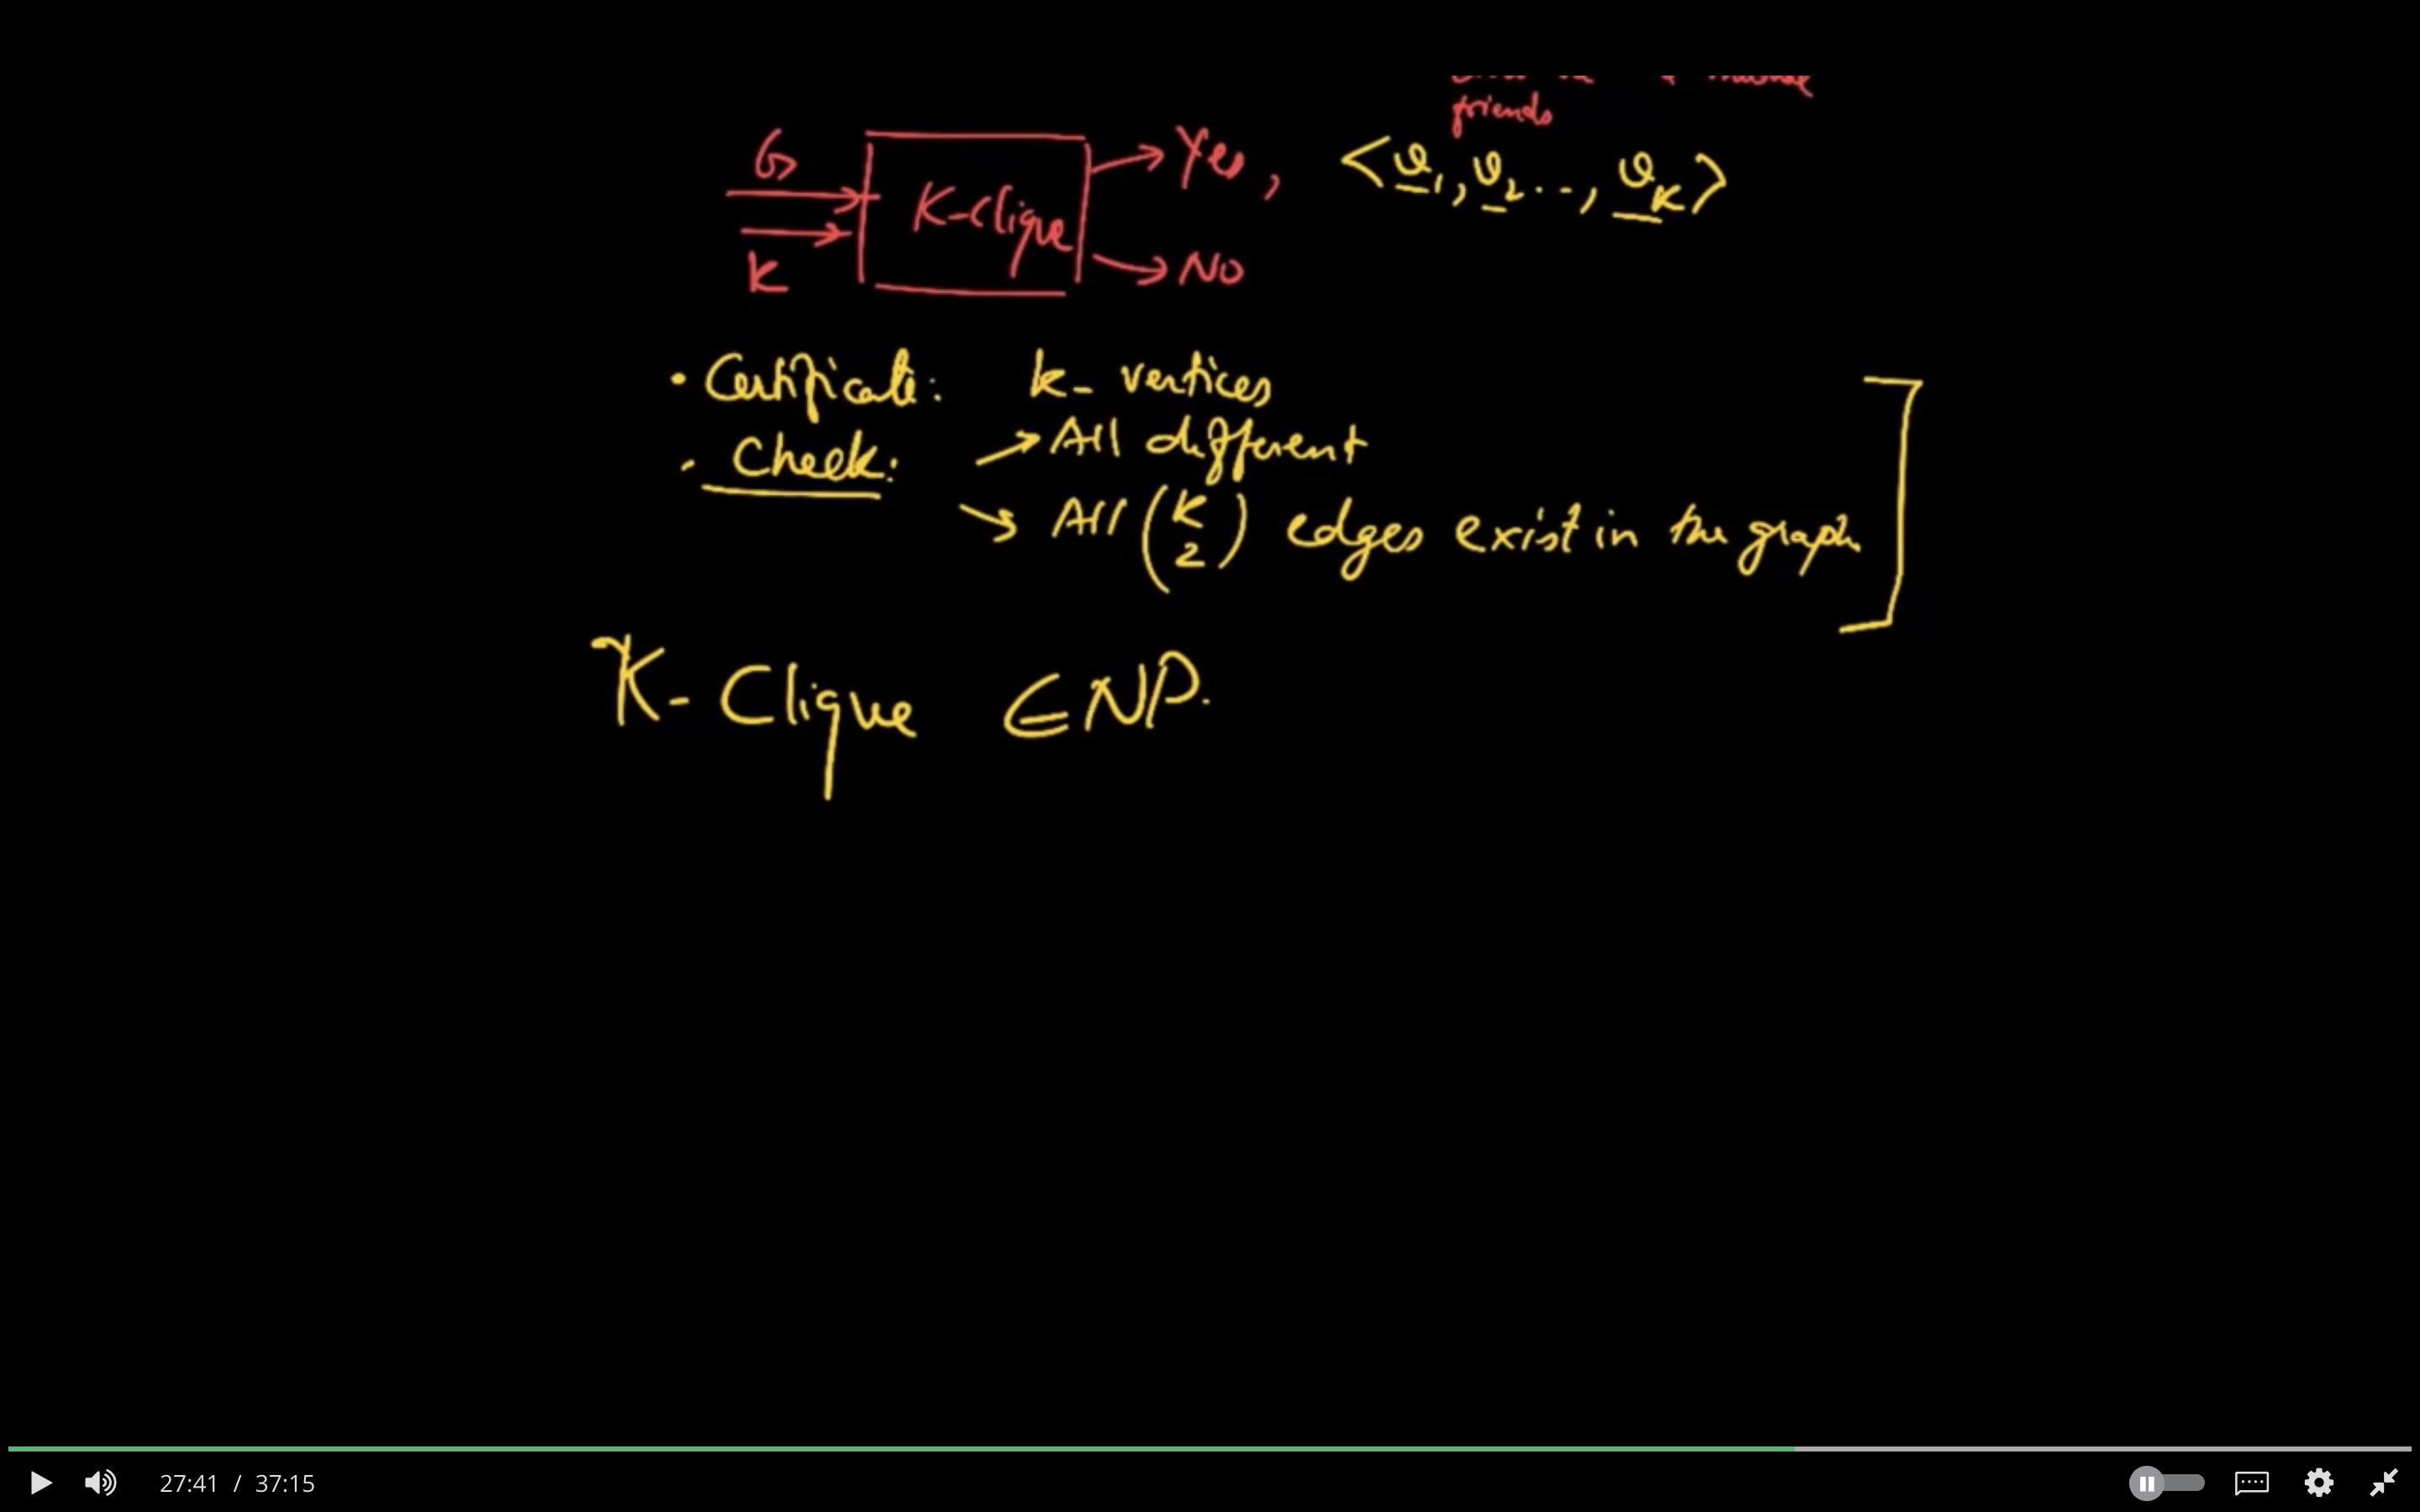 friends
G
K
K-Clique
Yes, <v₁, v₂ . . , v_K>
No
• Certificate: k- vertices
• Check: → All different
↘ All (K 2) edges exist in the graph
K- Clique ∈ NP.
27:41 / 37:15